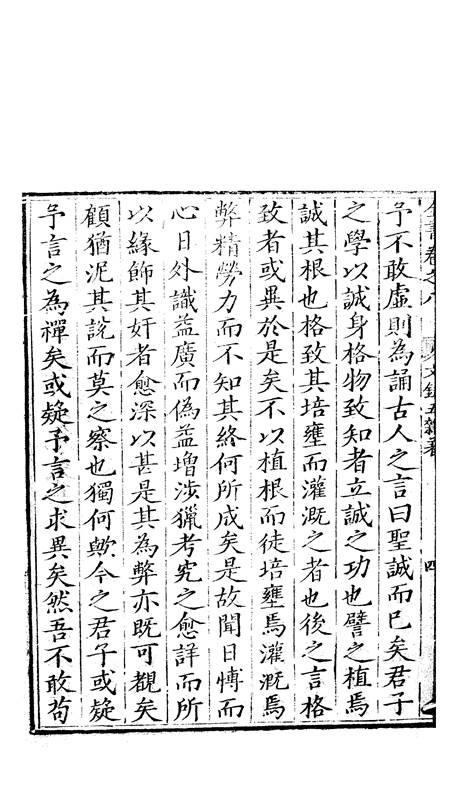 全書卷之八　文錄五雜著　四
予不敢虛則為誦古人之言曰聖誠而已矣君子
之學以誠身格物致知者立誠之功也譬之植焉
誠其根也格致其培壅而灌溉之者也後之言格
致者或異於是矣不以植根而徒培壅焉灌溉焉
弊精勞力而不知其終何所成矣是故聞日博而
心日外識益廣而偽益增涉獵考究之愈詳而所
以緣飾其奸者愈深以甚是其為弊亦既可覩矣
顧猶泥其說而莫之察也獨何歟今之君子或疑
予言之為禪矣或疑予言之求異矣然吾不敢苟